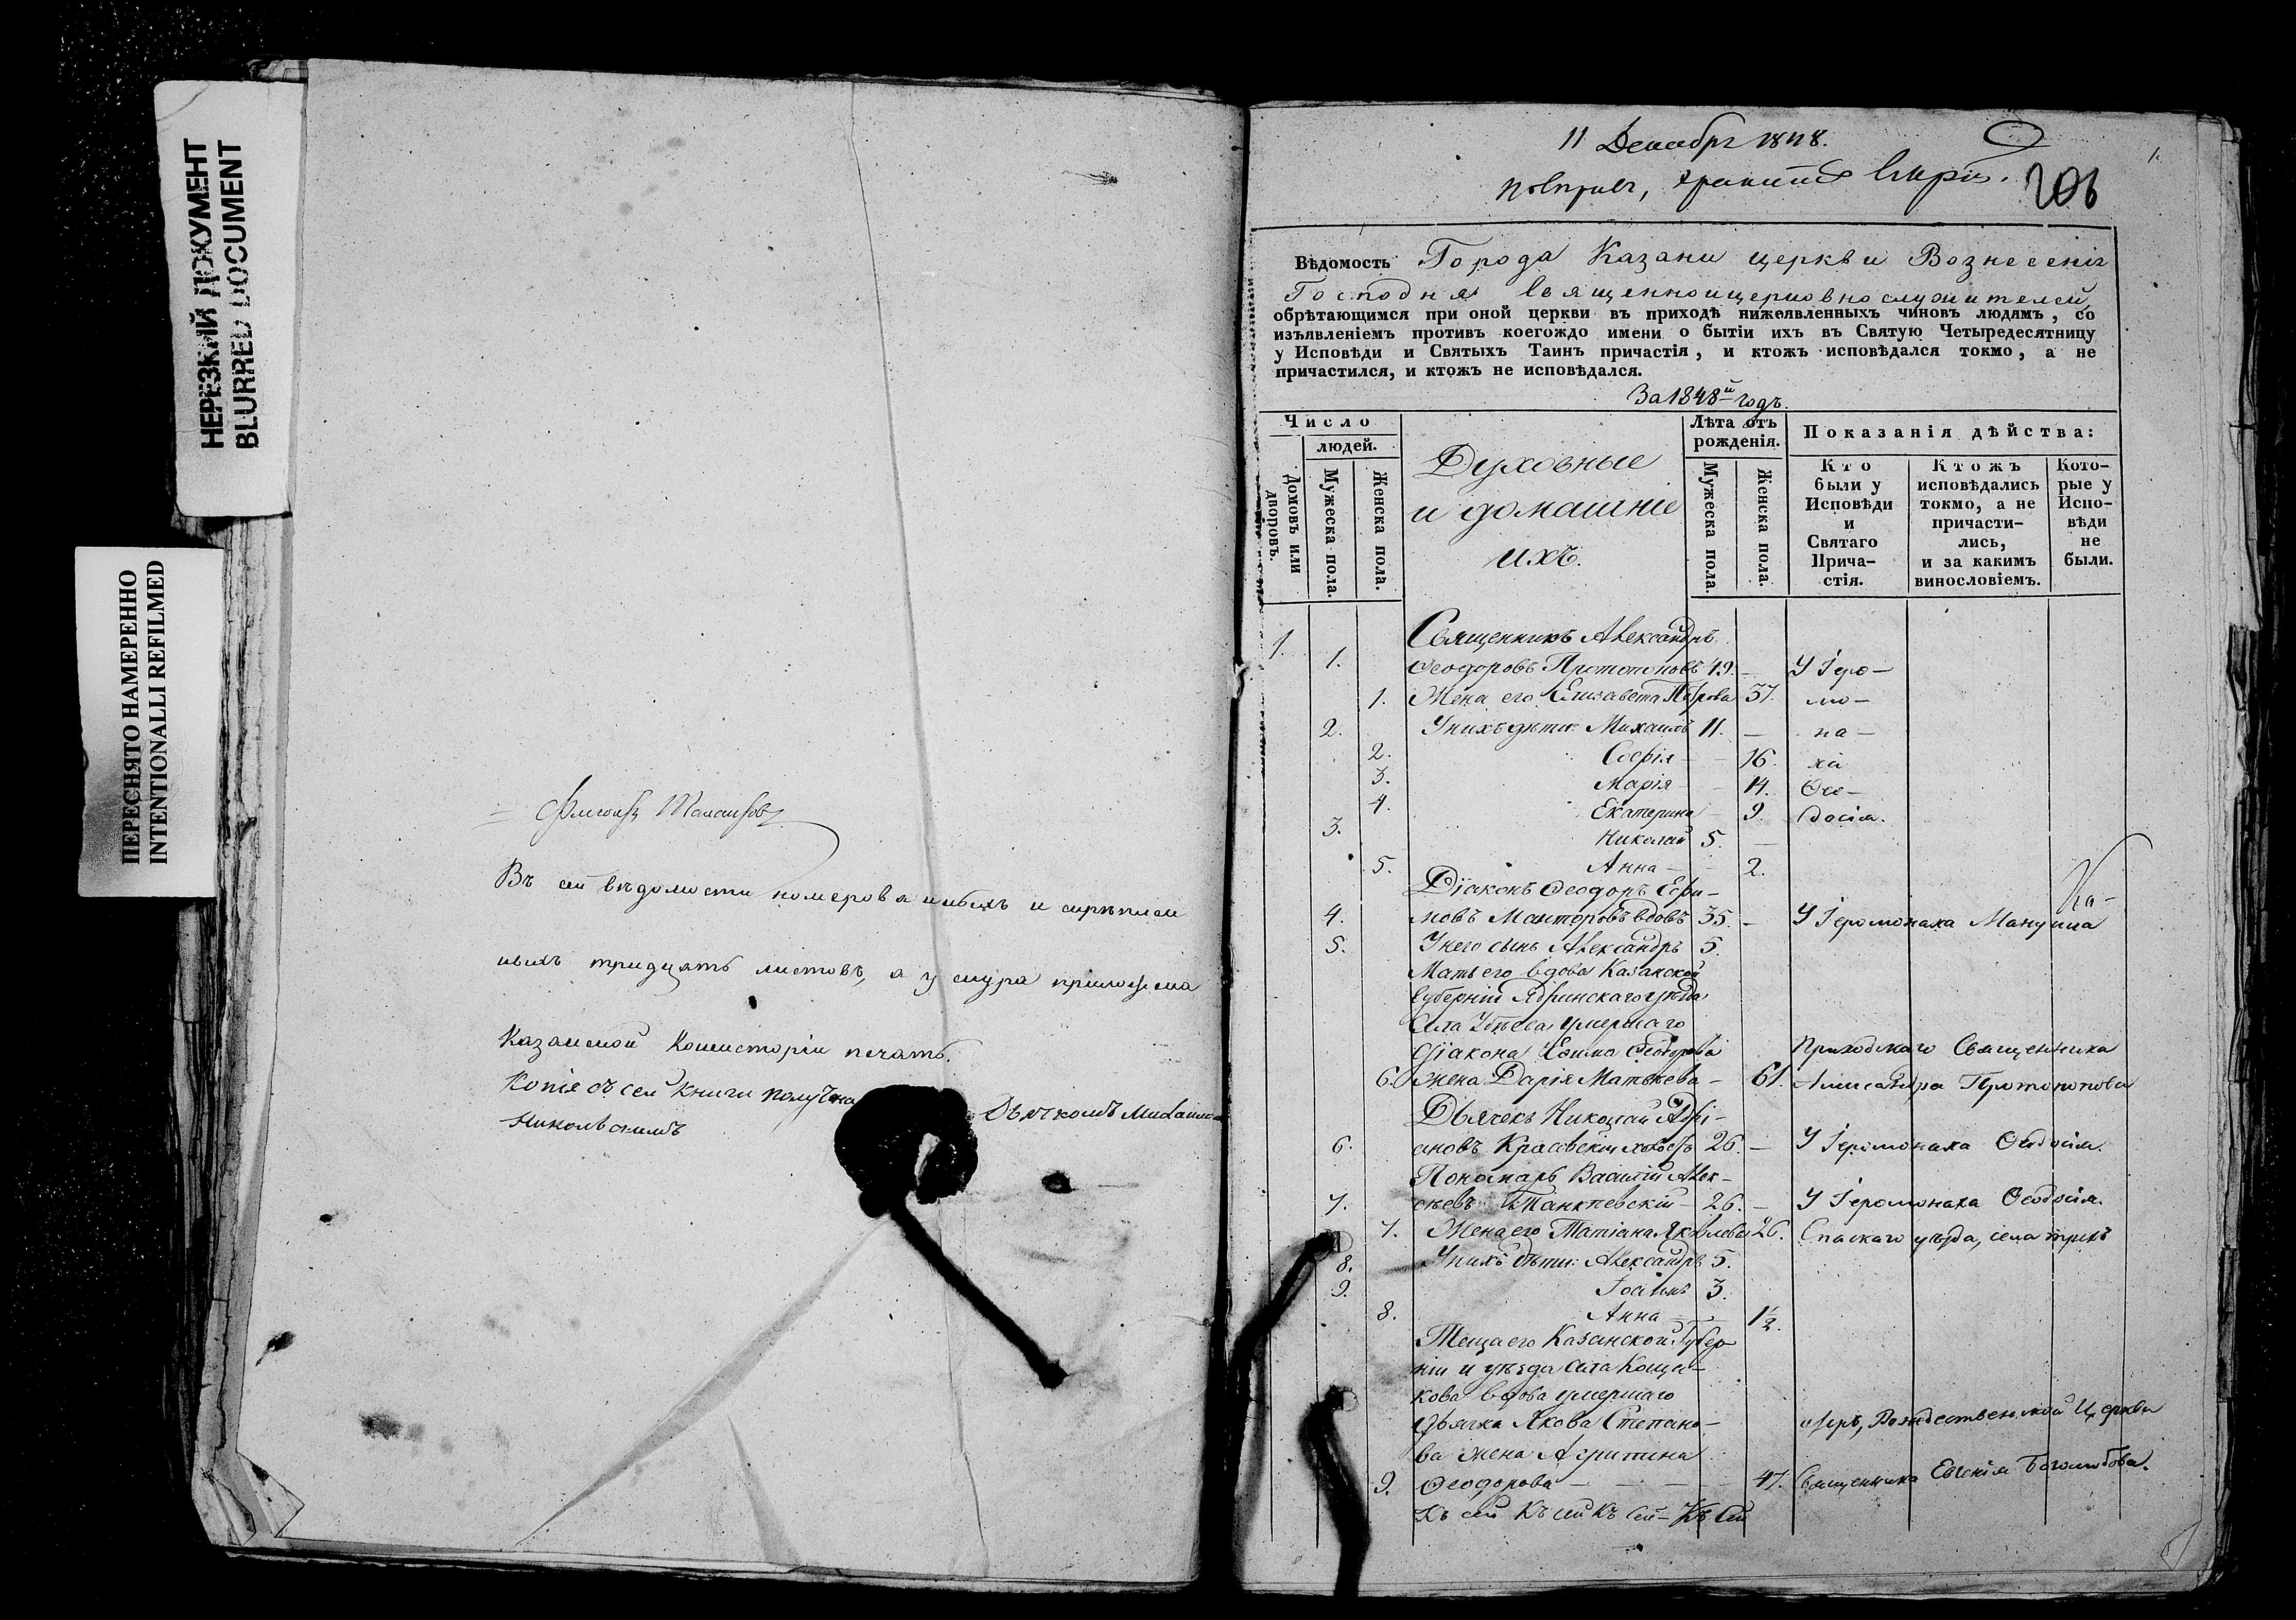 НЕРЕЗКИЙ ДОКУМЕНТ
BLURRED DOCUMENT
ПЕРЕСНЯТО НАМЕРЕННО
INTENTIONALLI REFILMED
Въ сей вѣдомости номерованныхъ и скрѣплен
ныхъ тридцать листовъ, а у шнура приложена
Казанской Консисторіи печать.
Копіе съ сей книги получена Дьячкомъ Михаиломъ
Никольскимъ
11 Декабря 1848.
206
Вѣдомость Города Казани церкви Вознесенія
Господня священноицерковнослужителей,
обрѣтающимся при оной церкви въ приходѣ нижеявленныхъ чиновъ людямъ, со
изъявленіемъ противъ коегождо имени о бытіи ихъ въ Святую Четыредесятницу
у Исповѣди и Святыхъ Таинъ причастія, и ктожъ исповѣдался токмо, а не
причастился, и ктожъ не исповѣдался.
За 1848й годъ.
Число
людей.
Домовъ или дворовъ.
Мужеска пола.
Женска пола.
Духовные
и домашніе
ихъ.
Лѣта отъ рожденія.
Мужеска пола.
Женска пола.
Показанія дѣйства:
Кто были у Исповѣди и Святаго Прича-стія.
Ктожъ исповѣдались токмо, а не причасти-лись, и за какимъ винословіемъ.
Кото-рые у Испо-вѣди не были.
Священникъ Александръ
1. 1. Ѳеодоровъ Протопоповъ 49. — У Іеро-
1. Жена его Елизавета Петрова 37. мо-
2. У нихъ дѣти: Михаилъ 11. — на-
2. Софія — 16. ха
3. Марія — 14. Ѳео-
4. Екатерина — 9. досія.
3. Николай 5. —
5. Анна — 2.
Діаконъ Ѳеодоръ Ефи-
4. мовъ вдовъ 35. — У Іеромонаха
5. У него сынъ Александръ 5.
Мать его вдова Казанской
Губерніи Ядринскаго уѣзда
Села умершаго
Діакона Ефима Ѳеодорова Приходскаго Священника
6. жена Дарія Матвѣева — 61. Александра Протопопова
Дьячекъ Николай Адрі-
6. ановъ Красовскій холостъ 26. — У Іеромонаха Ѳеодосія.
Пономарь Василій Алек-
7. сѣевъ 26. — У Іеромонаха Ѳеодосія.
7. Жена его Татіана Яковлева 26. Спаскаго уѣзда, села трехъ
8. У нихъ дѣти: Александръ 5.
9. Іоаннъ 3.
8. Анна — 1½.
Теща его Казанской Губер
ніи и уѣзда села Коща-
кова вдова умершаго
Дьячка Якова Степано- озеръ, Рождественской Церкви
ва жена Агрипина
9. Ѳеодорова — 47. Священника Евгенія Боголюбова.
Къ сей Къ сей Къ сей — Къ сей